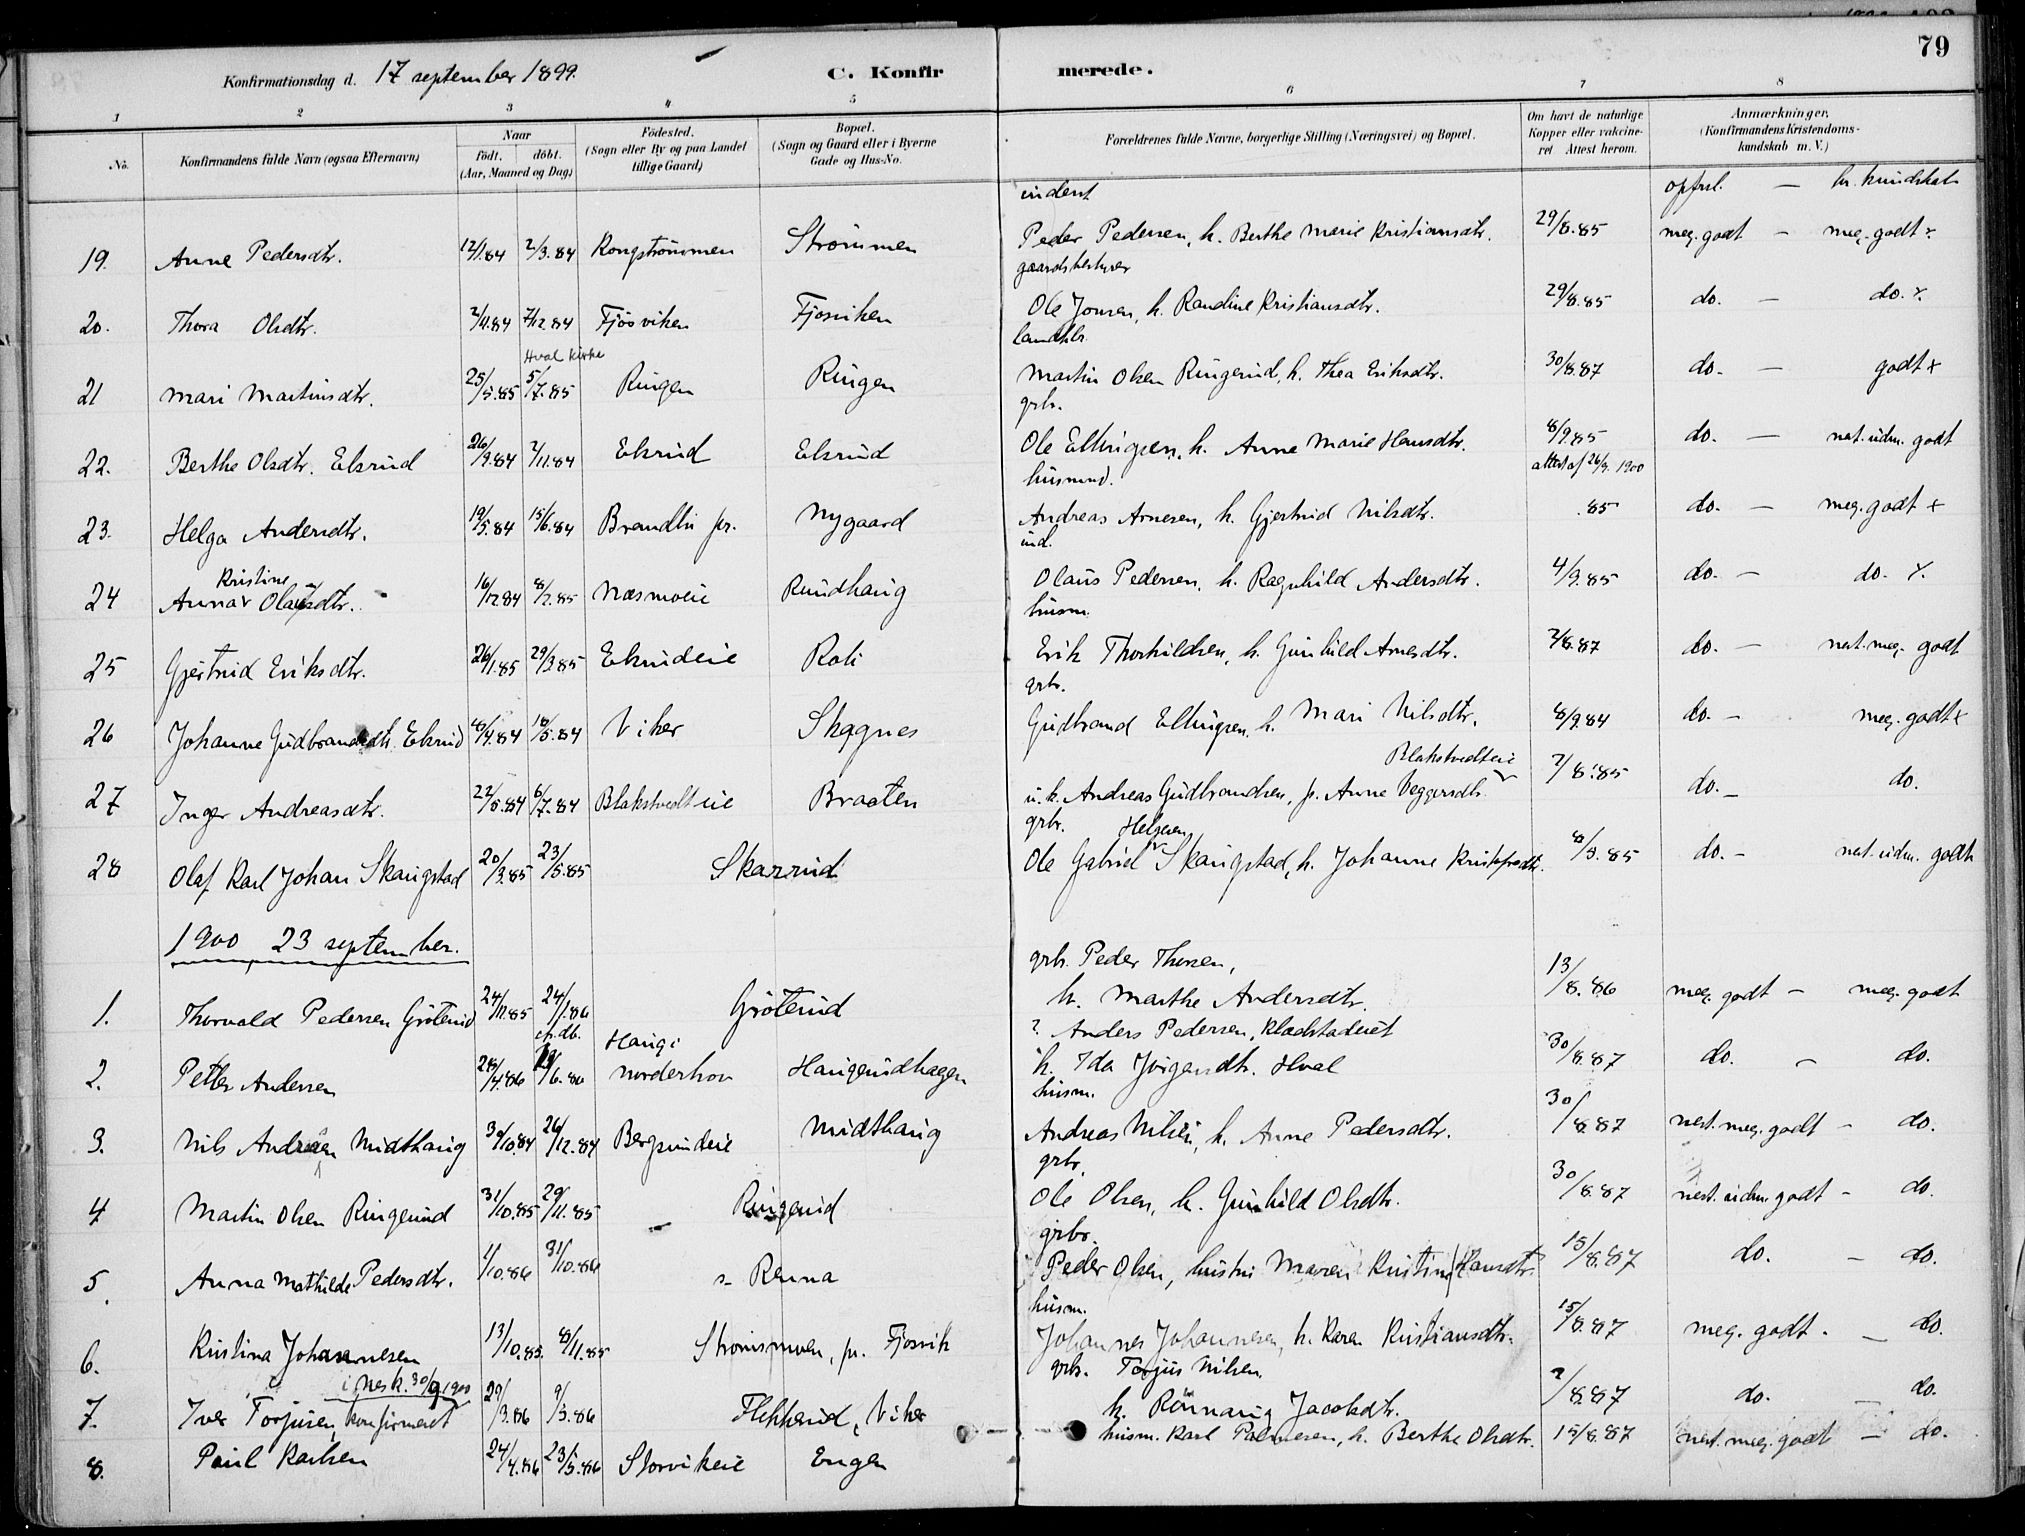 79
Konfirmationsdag d. 17 september 1899. C. Konfirmerede.
1 2 3 4 5 6 7 8
No. Konfirmandens fulde Navn (ogsaa Efternavn) Naar født. døbt. (Aar, Maaned og Dag) Fødested. (Sogn eller By og paa Landet tillige Gaard) Bopæl. (Sogn og Gaard eller i Byerne Gade og Hus-No. Forældrenes fulde Navne, borgerlige Stilling (Næringsvei) og Bopæl. Om havt de naturlige Kopper eller vakcineret Attest herom. Anmærkninger. (Konfirmandens Kristendomskundskab m. V.)
inderst opførsl. — kr. kundskab
19. Anne Pedersdtr. 12/1.84 2/3.84 Kongstrømmen Strømmen Peder Pedersen, h. Berthe Marie Kristiansdtr. 29/8.85 meg. godt — meg. godt
gaardsbestyrer
20. Thora Olsdtr. 7/12.84 Fjøsviken Fjosviken Ole Jonsen, h. Randine Kristiansdtr. 29/8.85 do. — do.
Hval kirke landhlr.
21 Mari Martinsdtr. 25/5.85 5/7.85 Ringen Ringen Martin Olsen Ringerud, h. Thea Eriksdtr. 30/8.87 do. — godt +
grbr.
22. Berthe Olsdtr. Elsrud 26/9.84 2/11.84 Elsrud Elsrud Ole Ellingsen, h. Anne Marie Hansdtr. 8/9.85 do. — nest. udm. godt
husmnd. attest af 26/9. 1900
23. Helga Andersdtr. 19/5.84 15/6.84 Brandli pr. Nygaard Andreas Arnesen, h. Gjertrud Nilsdtr. .85 do. — meg. godt +
ind.
Kristine
24 Anna Olausdtr. 16/12.84 8/2.85 Næsmoeie Rundhaug Olaus Pedersen, h. Ragnhild Andersdtr. 4/9.85 do. — do.
husm.
25 Gjertrud Eriksdtr. 26/1.85 29/3.85 Elsrudeie Roli Erik Thorkildsen, h. Gunhild Arnesdtr. 7/8.87 do. — nest. meg. godt
grbr.
26 Johanne Gudbrandsdtr. Elsrud 18/5.84 Viker Skagnes Gudbrand Ellingsen, h. Mari Nilsdtr. 8/9.84 do. — meg. godt +
Blakstvedteie
27 Inger Andreasdtr. 22/5.84 6/7.84 Blakstvedteie Braaten u. k. Andreas Gudbrandsen, p. Anne Veggersdtr. 7/8.85 do. — do.
grbr. Helgesen
28 Olaf Karl Johan Skaugstad 20/3.85 23/5.85 Skarrud Ole Gabriel Skaugstad, h. Johanne Kristofersdtr. 8/9.85 do. — nest. udm. godt
1900 23 september.
grbr. Peder Thoresen,
1. Thorvald Pedersen Grøterud 24/11.85 24/1.86 Grøterud h. Marthe Andersdtr. 13/8.86 meg. godt — meg. godt
Haug i ? Anders Pedersen, Klækstadeiet
2. Petter Andersen 28/4.86 Norderhov Haugerudhagen h. Ida Jørgensdtr. Hval 30/8.87 do. — do.
husm.
3. Nils Andreasen Midthaug 30/10.84 26/12.84 Bergsundeie Midthaug Andreas Nilsen, h. Anne Pedersdtr. 30/8.87 nest. meg. godt — do.
grbr.
4 Martin Olsen Ringerud 31/10.85 29/11.85 Ringerud Ole Olsen, h. Gunhild Olsdtr. 30/8.87 nest. udm. godt — do.
grbr.
5. Anna Mathilde Pedersdtr. 1/10.86 31/10.86 Renna Peder Olsen, hustru Maren Kristine Hansdtr. 15/8.87 do. — do.
husm.
6. Kristina Johannesen 13/10.85. 8/11.85 Strømsmoen, pr. Fjøsvik Johannes Johannesen, h. Karen Kristiansdtr. 15/8.87 meg. godt. — do.
i Nes k. 30/9 1900 grbr. Torjus Nilsen,
7. Iver Torjusen, konfirmeret 29/3.86 9/5.86 Flekkerud, Viker h. Rønnaug Jacobsdtr. 2/8.87 do. — do.
8. Paul Karlsen 24/4.86 23/5.86 Storvikeie Engen husm. Karl Palmesen, h. Berthe Olsdtr. 15/8.87 nest. meg. godt — do.